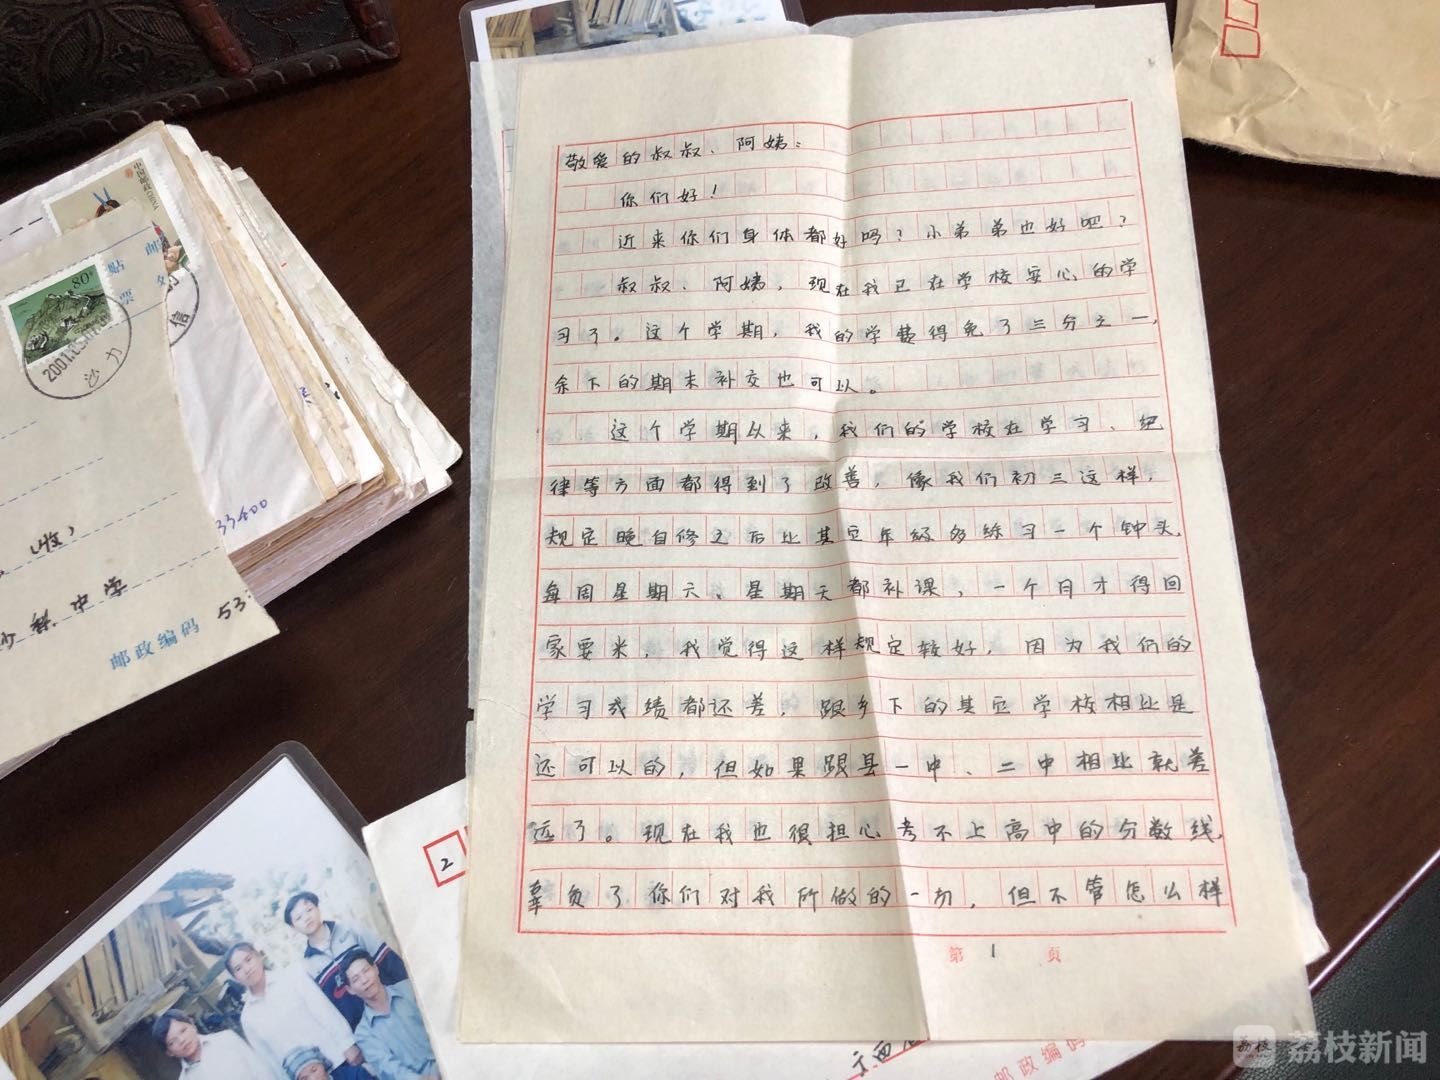 敬爱的叔叔、阿姨：
你们好！
近来你们身体都好吗？小弟弟也好吧？
叔叔、阿姨，现在我已在学校安心的学
习了。这个学期，我的学费得免了三分之一，
余下的期末补交也可以。
这个学期以来，我们的学校在学习、纪
律等方面都得到了改善，像我们初三这样，
规定晚自修之后比其它年级多练习一个钟头，
每周星期六、星期天都补课，一个月才得回
家要米，我觉得这样规定较好，因为我们的
学习成绩都还差，跟乡下的其它学校相比是
还可以的，但如果跟县一中、二中相比就差
远了。现在我也很担心考不上高中的分数线，
辜负了你们对我所做的一切，但不管怎么样
第1页
中国邮政
80
2001.
沙力
信
贴
邮
票
33400
(收)
中学
邮政编码 53
2
广西
邮政编码
荔枝
荔枝新闻